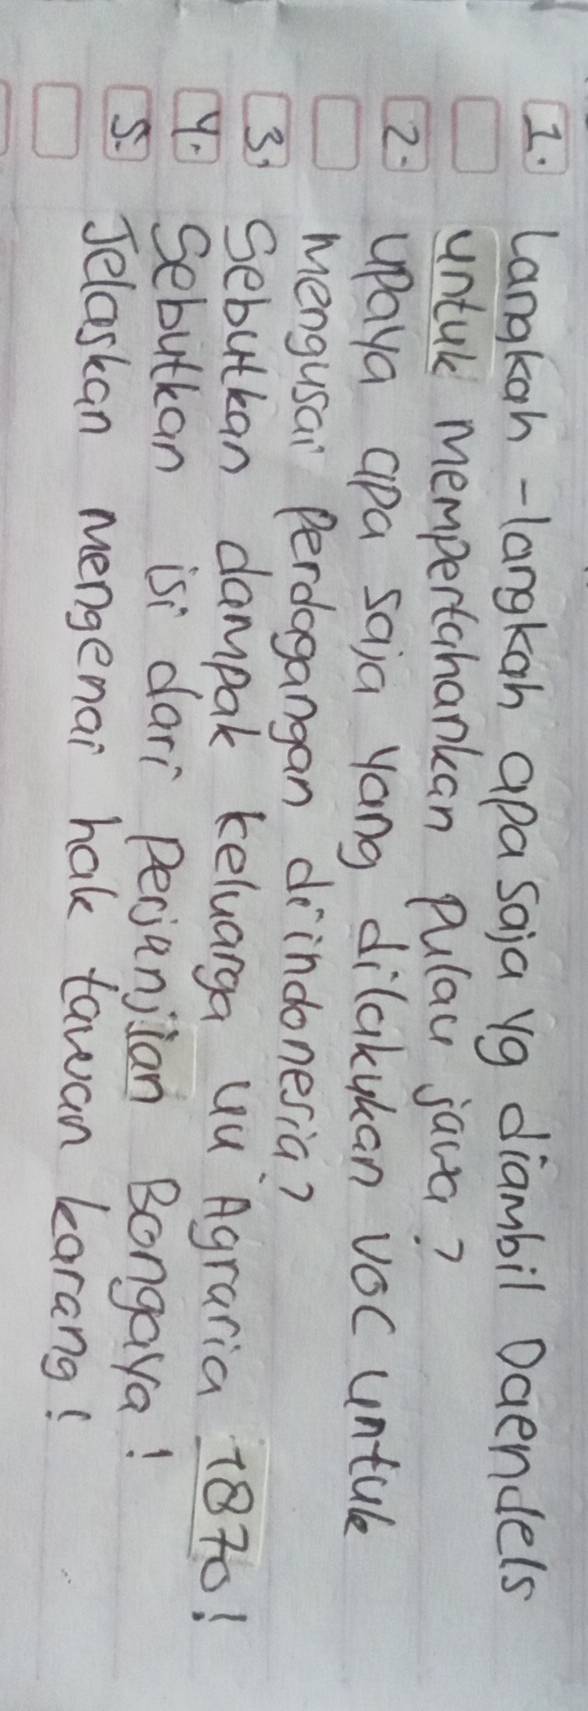 1. Langkah-langkah apa saja yg diambil Daendels
untuk mempertahankan pulau jawa?
2. upaya apa saja yang dilakukan VOC untuk
mengusai perdagangan diindonesia?
3. Sebutkan dampak keluarga uu Agraria 1870!
4. Sebutkan isi dari perjanjian Bongaya!
5. Jelaskan mengenai hak tawan karang!